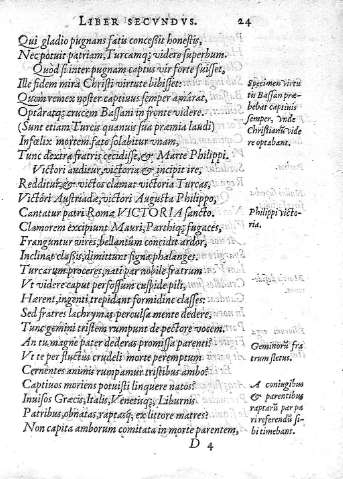 LIBER SECVNDVS. 24
Qui gladio pugnans fatis concessit honestis,
Nec potuit patriam, Turcamq; videre superbum.
Quod si inter pugnam captus vir forte fuisset,
Ille fidem mira Christi virtute bibisset:
Quem remex noster captiuus semper amârat,
Optâratq; crucem Bassani in fronte videre.
(Sunt etiam Turcis quamuis sua præmia laudi)
Infœlix mortem fato solabitur vnam,
Tunc dextra fratris cecidisse, & Marte Philippi.
Victori auditur, victoria & incipit ire,
Redditur, & victos clamat victoria Turcas,
Victori Austriadæ, victori Augusta Philippo,
Cantatur patri Romæ VICTORIA sancto.
Clamorem excipiunt Mauri, Parthiq; fugaces,
Franguntur vires, bellantum concidit ardor,
Inclinat classis, dimittunt signa phalanges.
Turcarum proceres, nati par nobile fratrum
Vt videre caput perfossum cuspide pili,
Hærent, ingenti trepidant formidine classes:
Sed fratres lachrymas perculsa mente dedere,
Tunc gemini tristem rumpunt de pectore vocem.
An tu magne pater dederas promissa parenti?
Vt te per fluctus crudeli morte peremptum
Cernentes animis rumpamur tristibus ambo?
Captiuos moriens potuisti linquere natos?
Inuisos Græcis, Italis, Venetisq; Liburnis
Patribus, ob natas, raptasq; ex littore matres?
Non capita amborum comitata in morte parentem,
D 4
Specimen virtu
tis Bassan præ-
bebat captiuis
semper, vnde
Christiani vide
re optabant.
Philippi victo-
ria.
Geminorũ fra
trum fletus.
A coniugibus
& parentibus
raptarũ par pa
ri referendũ si-
bi timebant.